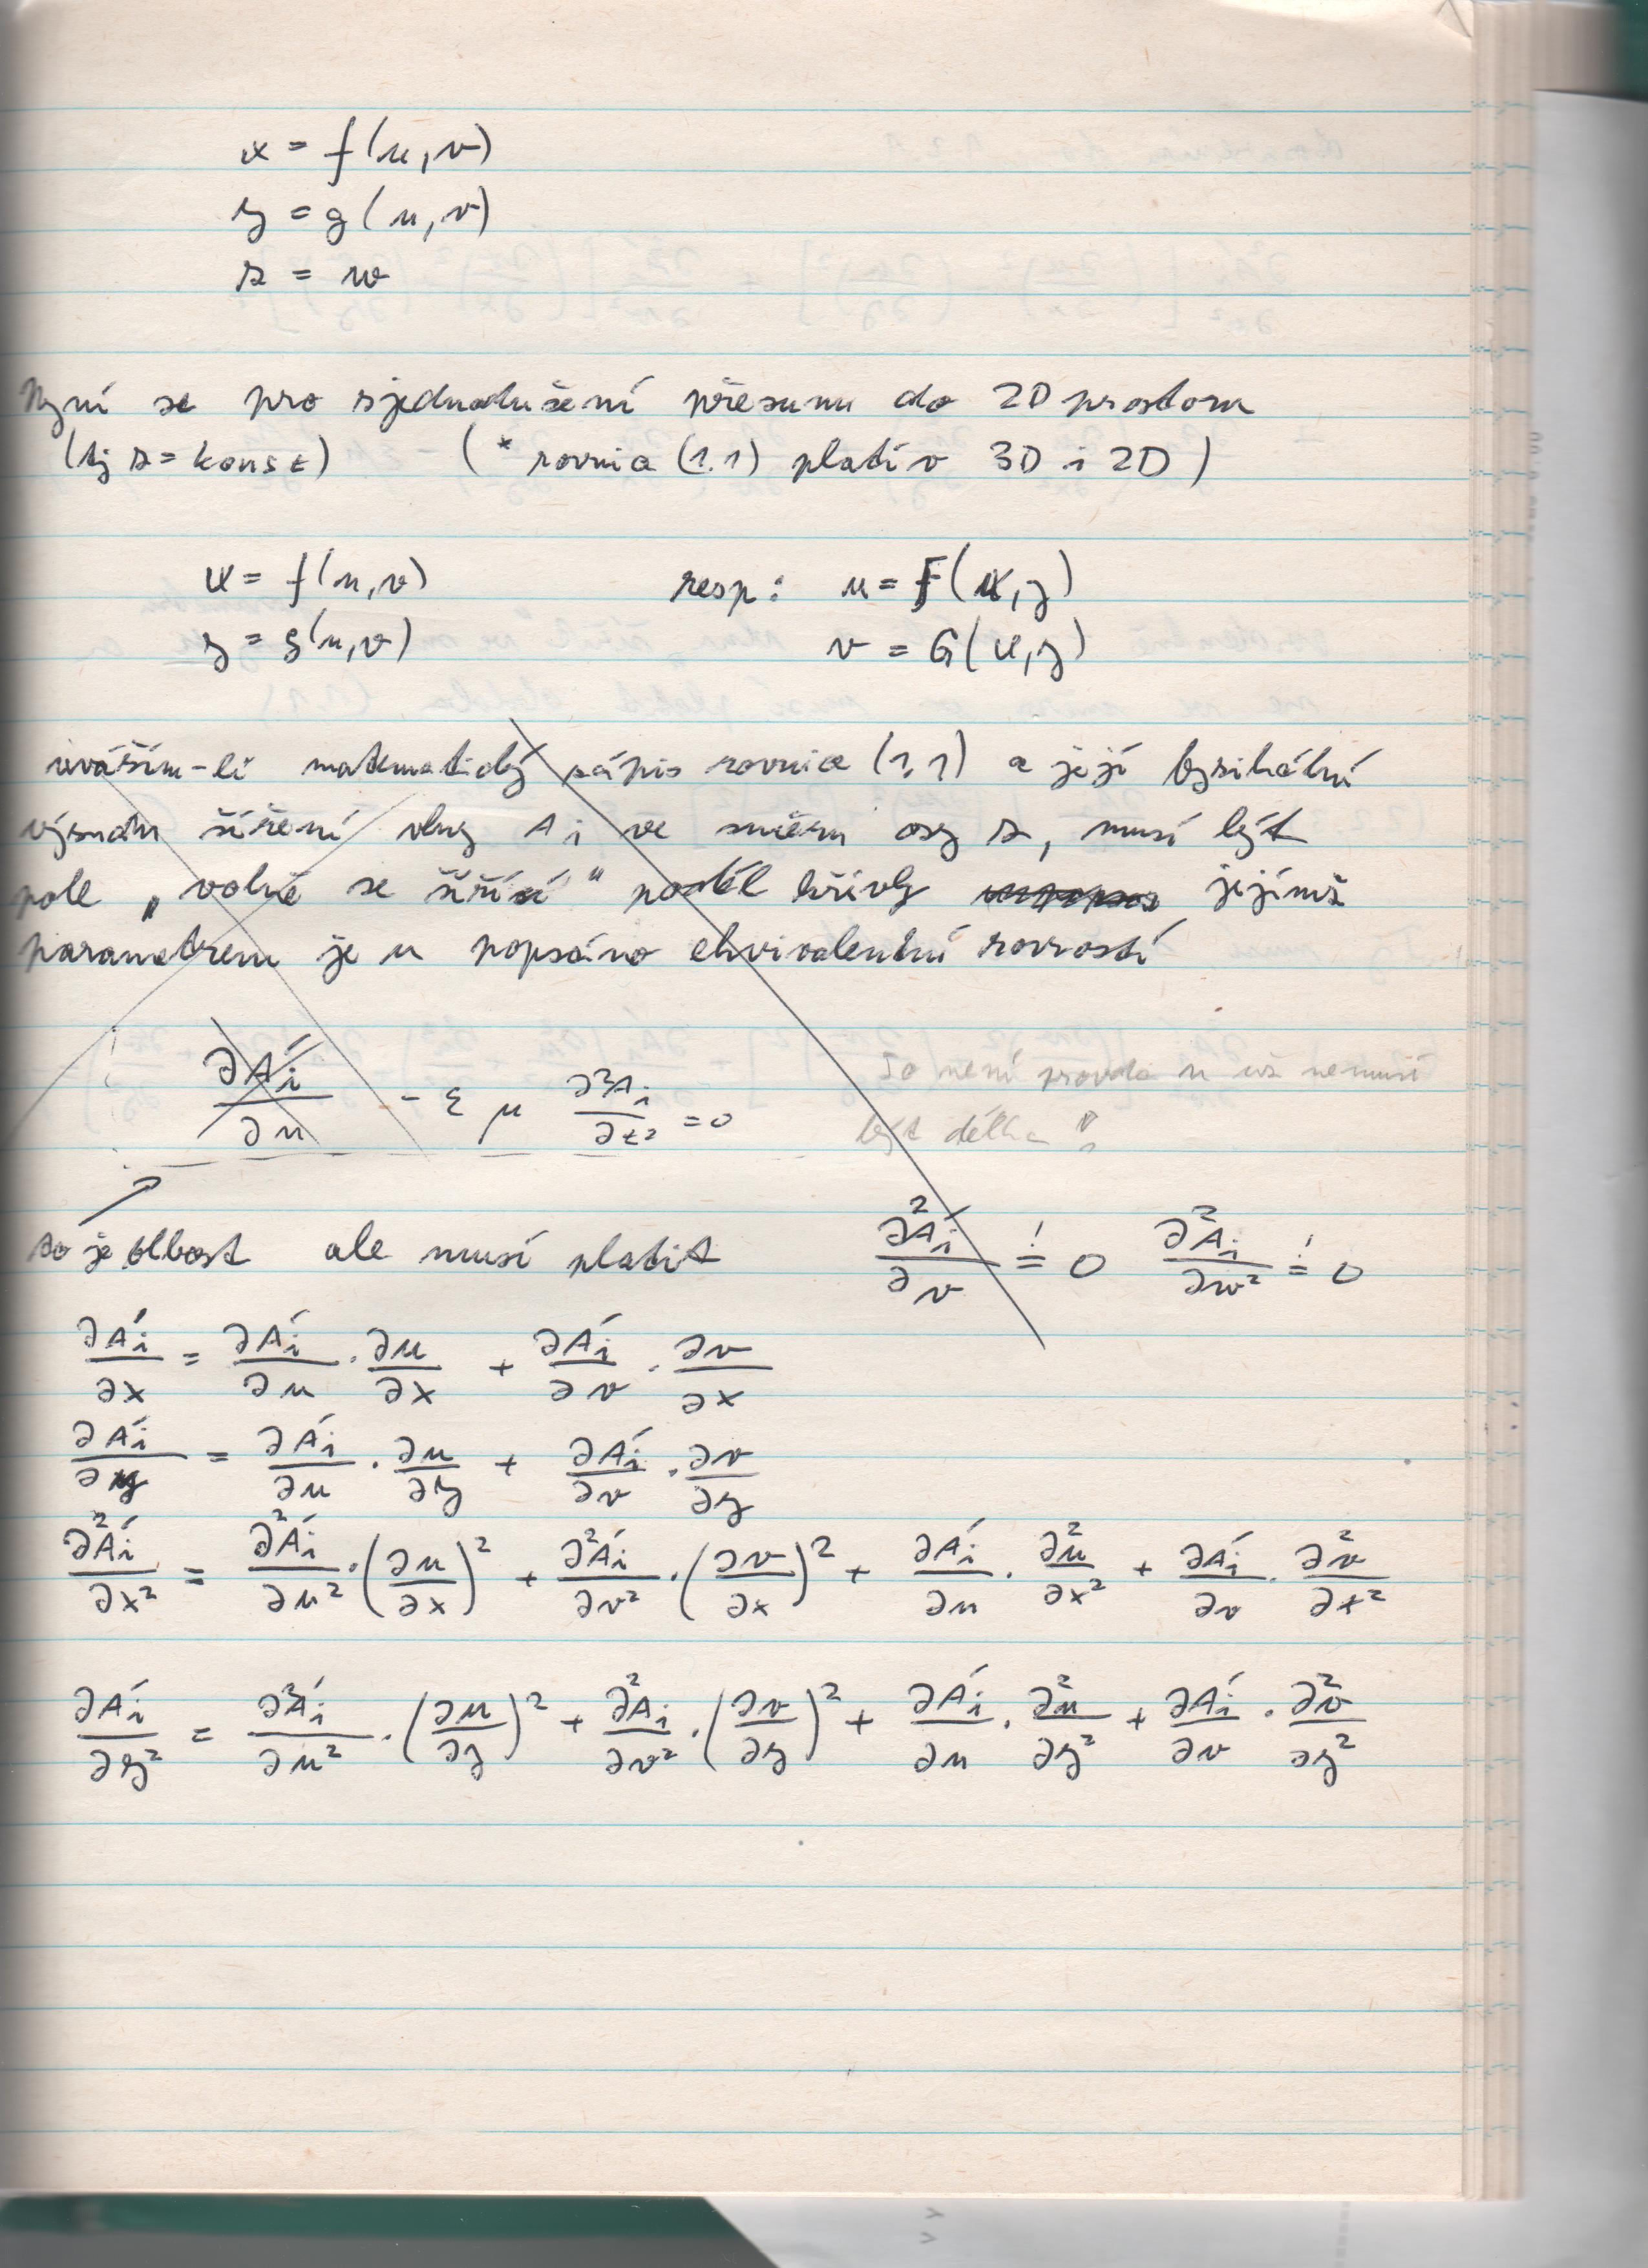 x = f(u,v)
y = g(u,v)
z = w
Nyní se pro zjednodušení přesunu do 2D prostoru
(tj z = konst) (* rovnia (1.1) platí v 3D i 2D)
x = f(u,v) resp: u = F(x,y)
y = g(u,v) v = G(x,y)
uvážím-li matematický zápis rovnice (1.1) a její fyzikální
význam šíření vlny Ai ve směru osy z, musí být
pole „volně se šířící“ podél křivky jejímž
parametrem je u popsáno ekvivalentní rovností
∂Ai/∂u - ε μ ∂²Ai/∂t² = 0
To není pravda u už nemusí
být délka
to je blbost ale musí platit ∂²Ai/∂v =! 0 ∂²Ai/∂v² =! 0
∂Ai/∂x = ∂Ai/∂u · ∂u/∂x + ∂Ai/∂v · ∂v/∂x
∂Ai/∂y = ∂Ai/∂u · ∂u/∂y + ∂Ai/∂v · ∂v/∂y
∂²Ai/∂x² = ∂²Ai/∂u² · (∂u/∂x)² + ∂²Ai/∂v² · (∂v/∂x)² + ∂Ai/∂u · ∂²u/∂x² + ∂Ai/∂v · ∂²v/∂x²
∂Ai/∂y² = ∂²Ai/∂u² · (∂u/∂y)² + ∂²Ai/∂v² · (∂v/∂y)² + ∂Ai/∂u · ∂²u/∂y² + ∂Ai/∂v · ∂²v/∂y²